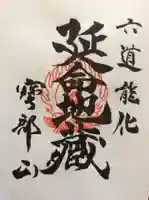 六道能化
延命地藏
寶部山